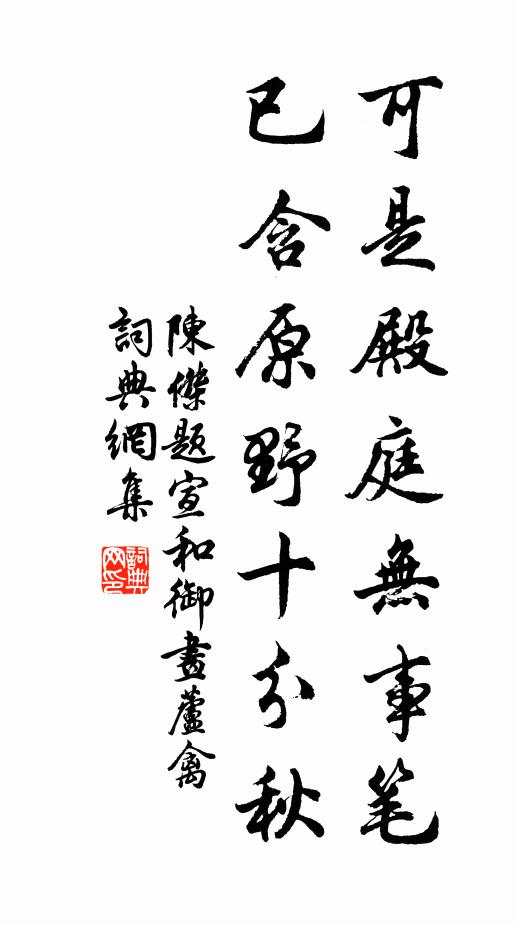 可是殿庭無事笔
已含原野十分秋
陳傑题宣和御畫蘆禽
詞典網集
詞典网印